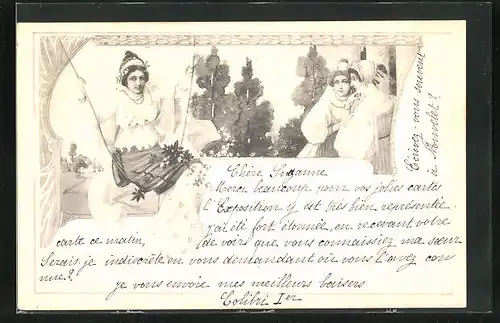 Chère Suzanne
Merci beaucoup pour vos jolies cartes
l'Exposition y est très bien représentée
j'ai été fort étonnée, en recevant votre
carte ce matin, de voir que vous connaissiez ma sœur
Serais-je indiscrète en vous demandant où vous l'avez con
nue?
je vous envoie mes meilleurs baisers
Colibri Ier
Ecrivez-vous souvent
à